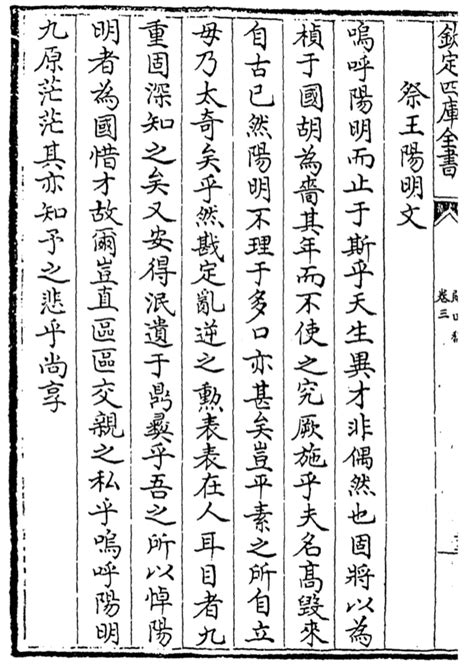 欽定四庫全書
卷三
祭王陽明文
嗚呼陽明而止于斯乎天生異才非偶然也固將以為
楨于國胡為嗇其年而不使之究厥施乎夫名髙毀來
自古已然陽明不理于多口亦甚矣豈平素之所自立
毋乃太奇矣乎然戡定亂逆之勲表表在人耳目者九
重固深知之矣又安得泯遺于鼎彞乎吾之所以悼陽
明者為國惜才故爾豈直區區交親之私乎嗚呼陽明
九原茫茫其亦知予之悲乎尚享